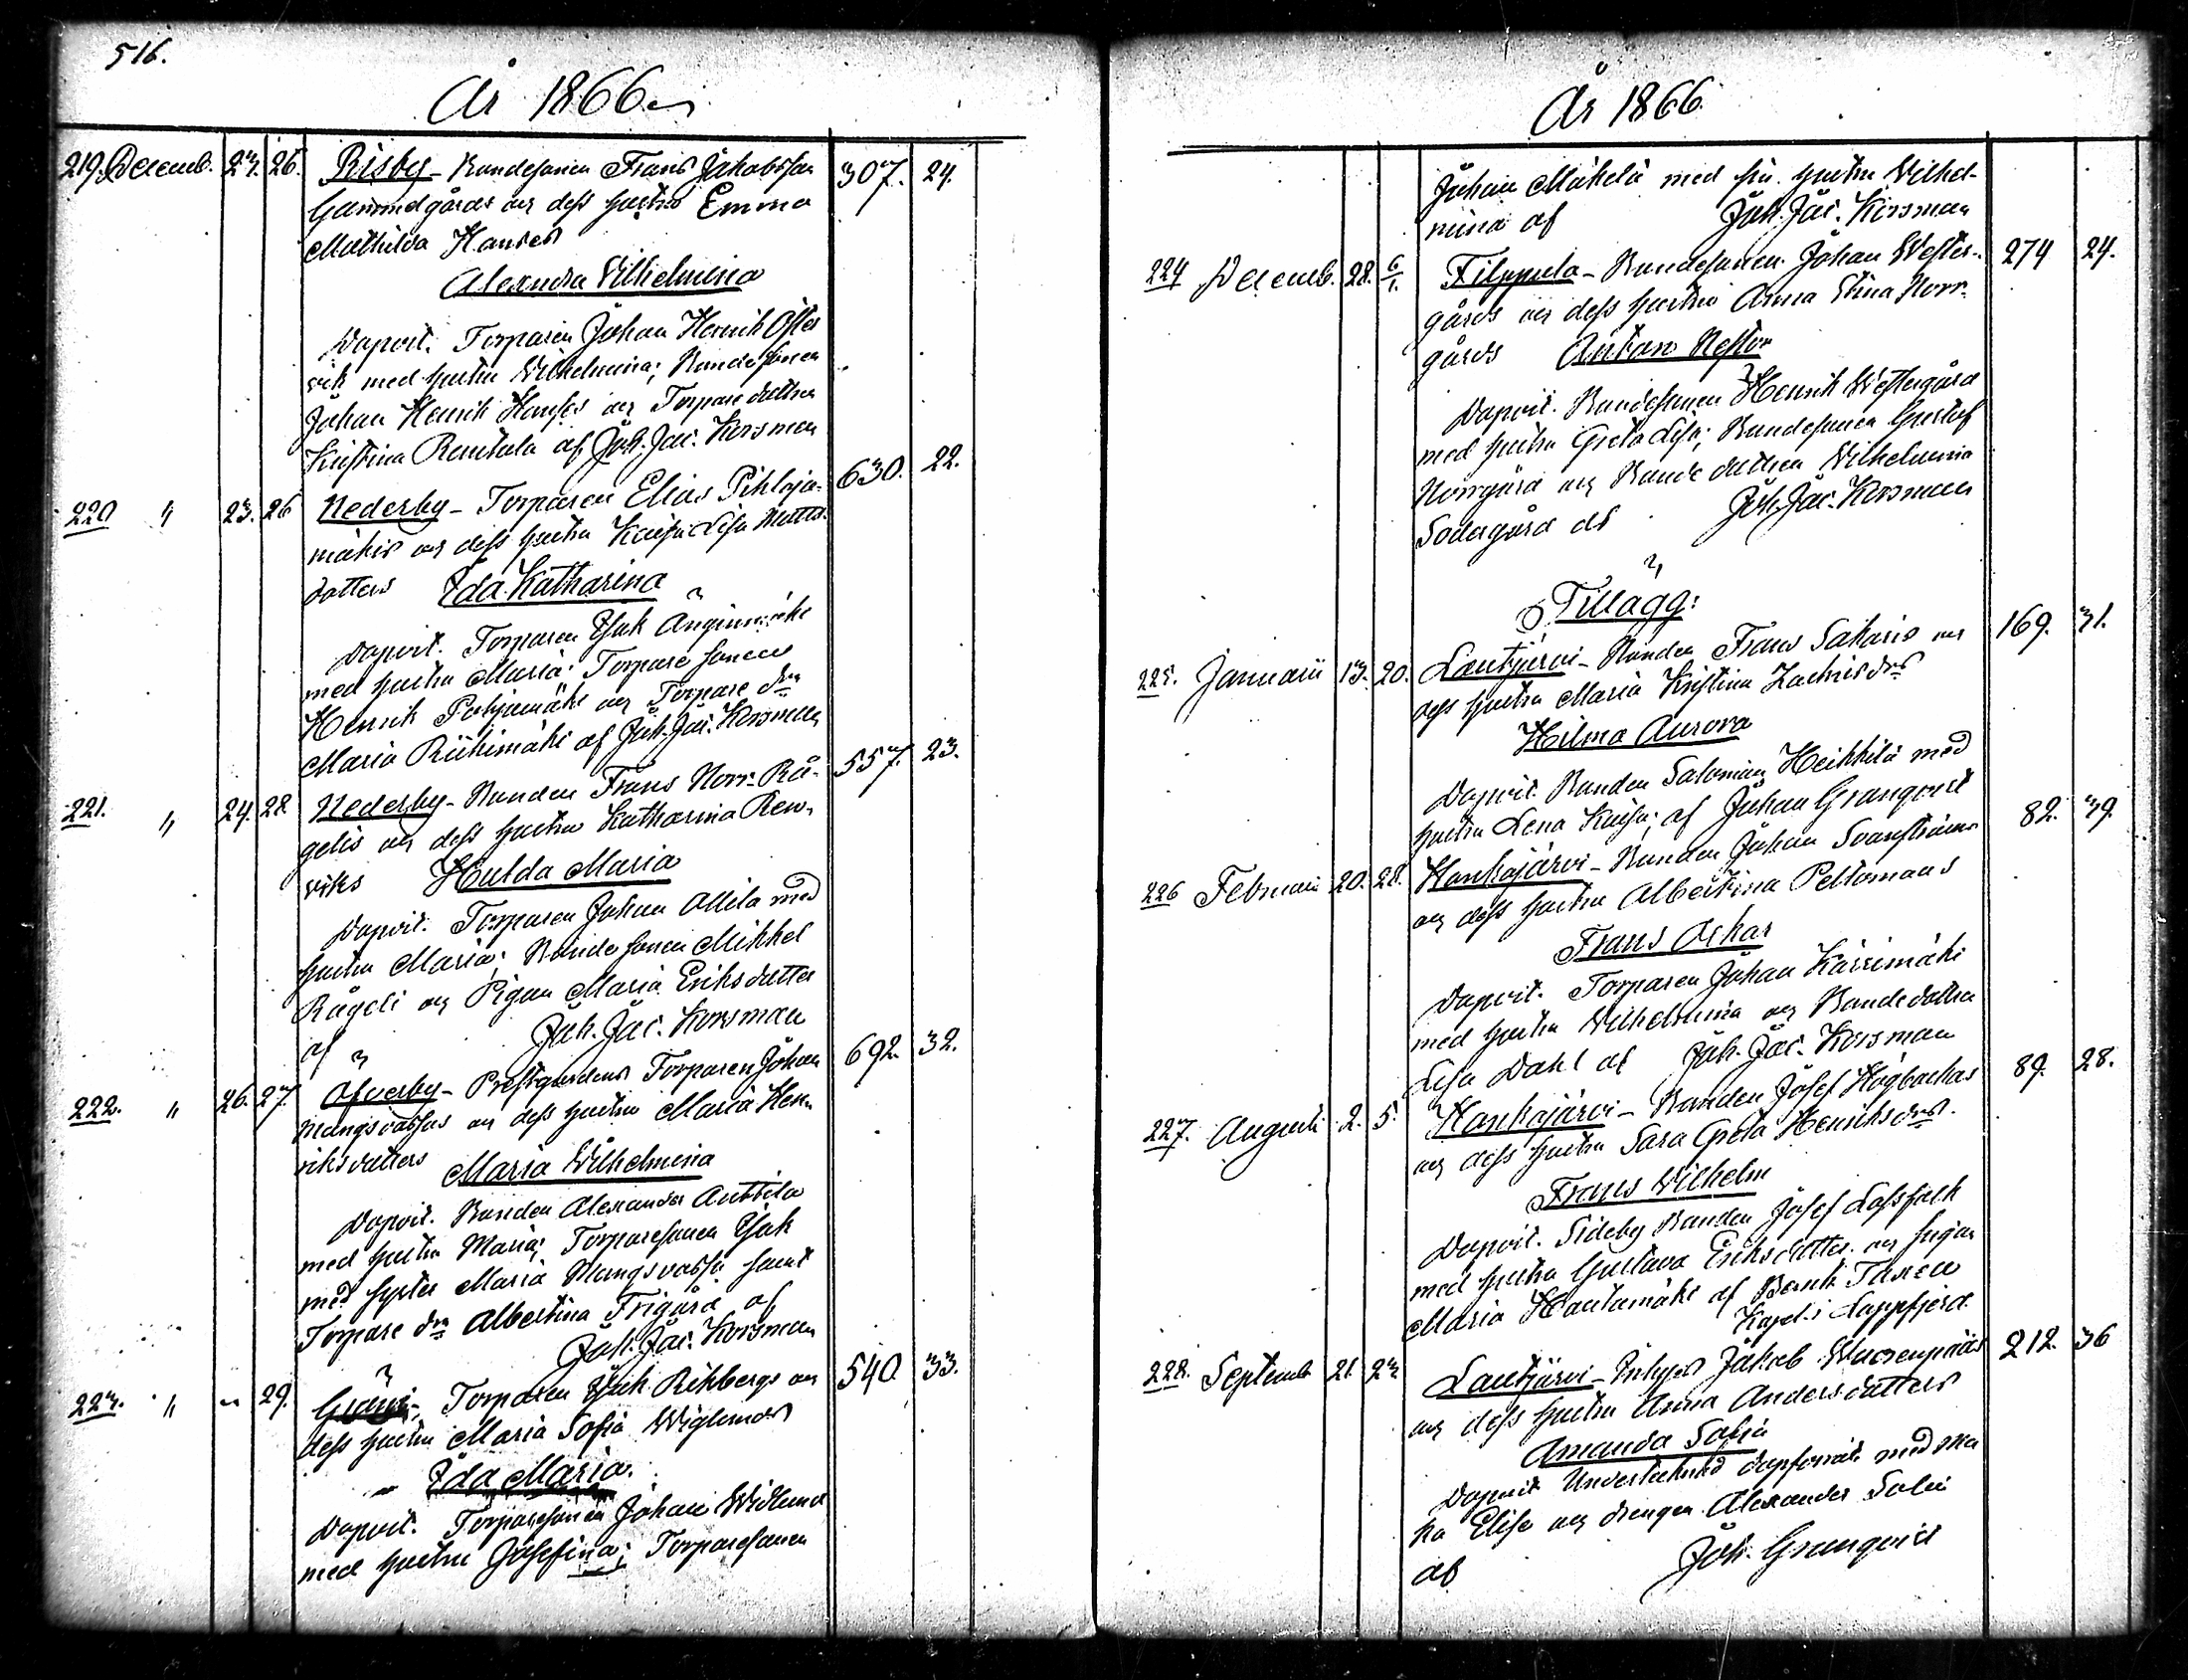 516.
År 1866
219. Decemb. 23. 26. Risby - Bondesonen Frans Jakobsson 307. 24.
Gammelgårds och dess hustru Emma
Mathilda Hanses
Alexandra Vilhelmina
Dopvit. Torparen Johan Henrik Öster
vik med hustru Wilhelmina; Bondesonen
Johan Henrik och Torpare dottren
Kristina Rantala af Joh. Jac. Korsman
220 " 23. 26 Nederby - Torparen Elias Pihlaja- 630. 22.
mäkis och dess hustru Kajsa Lisa Matts
dotters Ida Katharina
Dopvit. Torparen Isak
med hustru Maria; Torpare sonen
Henrik Pohjamäki och Torpare dn
Maria Riihimäki af Joh. Jac. Korsman
221. " 24. 28 Nederby - Bonden Frans Norr-Rå- 557. 23.
gelis och dess hustru Katharina Ren-
viks Hulda Maria
Dopvit. Torparen Johan Ollila med
hustru Maria; Bondesonen Mikkel
Rågeli och Pigan Maria Eriksdotter
af Joh. Jac. Korsman
222. " 26. 27. Ofverby - Prestgårdens Torparen Johan 692. 32.
Mangsvassas och dess hustru Maria Hen-
riksdotters Maria Wilhelmina
Dopvit. Bonden Alexander Anttila
med hustru Maria; Torparesonen Isak
med syster Maria Mangsvassa samt
Torpare dn Albertina Frigård af
Joh. Jac. Korsman
223. " " 29. Torparen Isak Rihbergs och 540. 33.
dess hustru Maria Sofia Wiglunds
Ida Maria.
Dopvit. Torparesonen Johan Widlund
med hustru Josefina; Torparesonen
År 1866
Johan Mäkelä med hu. hustru Vilhel-
mina af Joh. Jac. Korsman
224 Decemb. 28. 6/1. Filppula - Bondesonen Johan Wester- 274 24.
gårds och dess hustru Anna Stina Norr-
gårds Anton Nestor
Dopvit. Bondesonen Henrik Westergård
med hustru Greta Lisa; Bondesonen Gustaf
Norrgård och Bonde dottren Wilhelmina
Södergård af Joh. Jac. Korsman
Tillägg:
225. Januarii 13. 20. Lautjärvi - Bonden Frans Sakaris och 169. 31.
dess hustru Maria Kristina Zachrisdrs
Hilma Aurora
Dopvit. Bonden Salomon Heikkilä med
hustru Lena Kajsa; af Johan Granqvist
226 Februari 20. 28. Hankajärvi - Bonden Johan Svanströms 82. 39.
och dess hustru Albertina Peltomaas
Frans Oskar
Dopvit. Torparen Johan Kärrimäki
med hustru Wilhelmina och Bondedottren
Lisa Dahl af Joh. Jac. Korsman
227. Augusti 2. 5. Hankajärvi - Bonden Josef Högbackas 89. 28.
och dess hustru Sara Greta Henriksdrs.
Frans Wilhelm
Dopvit. Sideby Bonden Josef Lassfolk
med hustru Gustava Eriksdotter och pigan
Maria Hautamäki af Bernh. Taxen
Kapel. i Lappfjerd.
228. Septemb 21. 23 Lautjärvi - Jakob 212. 36
och dess hustru Anna Andersdotters
Amanda Sofia
Dopvit Undertecknad dopförrätt. med ma
ka Elise och drengen Alexander Salin
af Joh. Granqvist